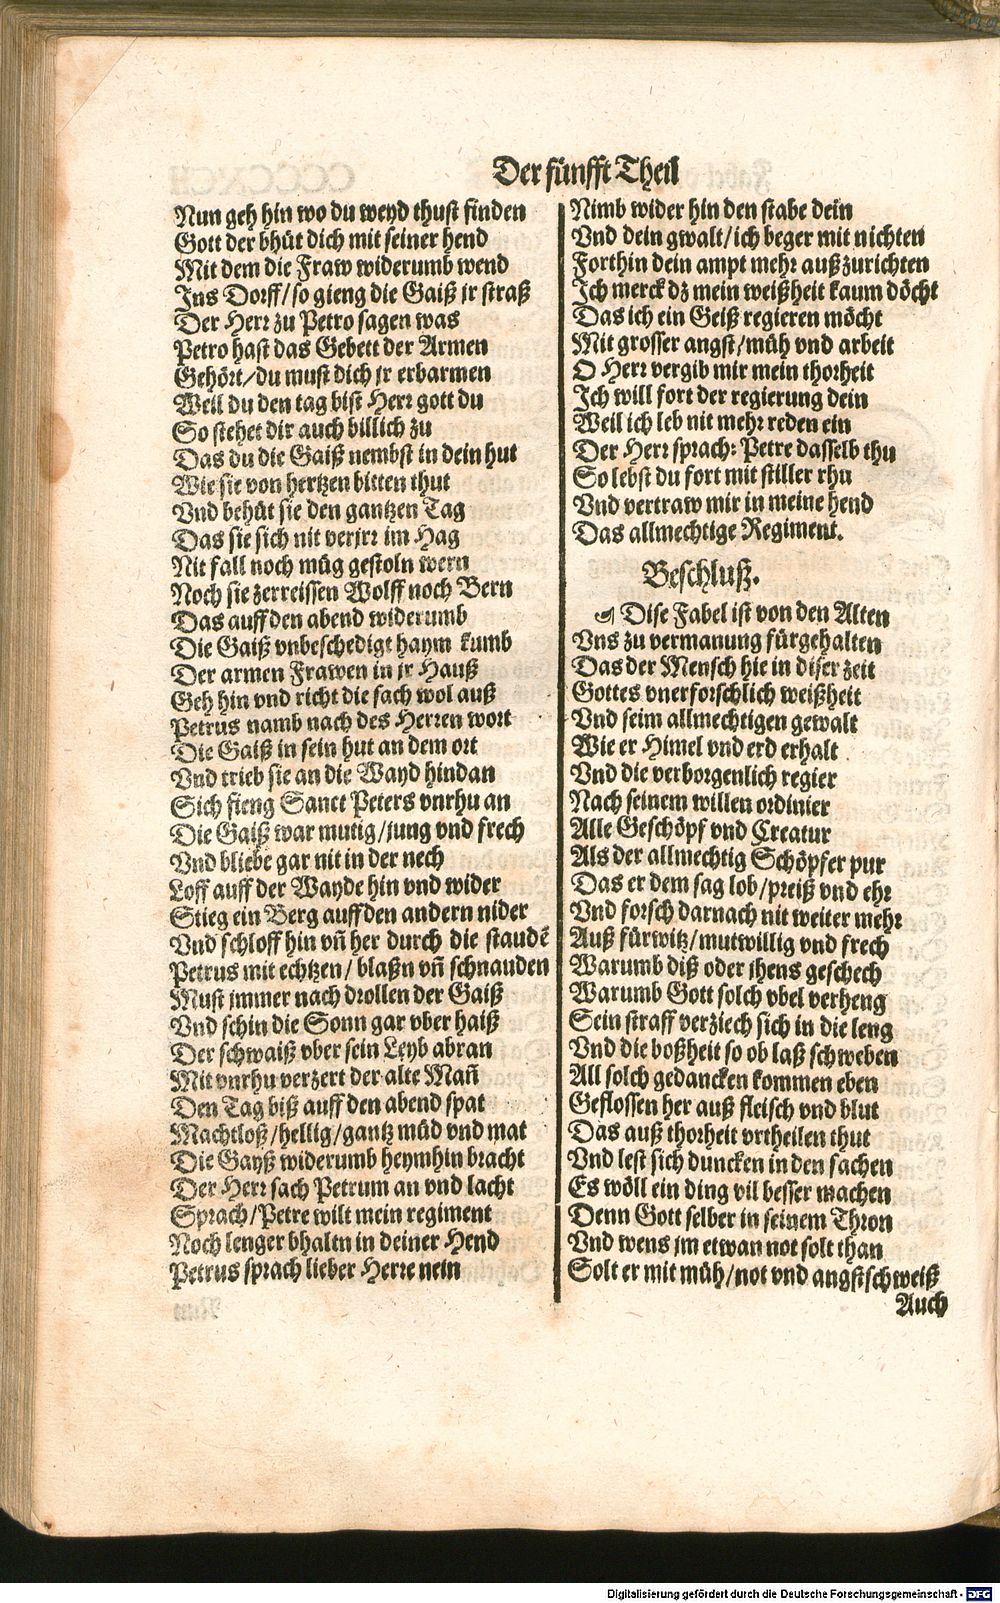 Der fünfft Theil
Nun geh hin wo du weyd thust finden
Gott der bhüt dich mit seiner hend
Mit dem die Fraw widerumb wend
Ins Dorff/so gieng die Gaiß jr straß
Der Herr zu Petro sagen was
Petro hast das Gebett der Armen
Gehört/du must dich jr erbarmen
Weil du den tag bist Herr gott du
So stehet dir auch billich zu
Das du die Gaiß nembst in dein hut
Wie sie von hertzen bitten thut
Vnd behüt sie den gantzen Tag
Das sie sich nit verjrr im Hag
Nit fall noch müg gestoln wern
Noch sie zerreissen Wolff noch Bern
Das auff den abend widerumb
Die Gaiß vnbeschedigt haym kumb
Der armen Frawen in jr Hauß
Geh hin vnd richt die sach wol auß
Petrus namb nach des Herren wort
Die Gaiß in sein hut an dem ort
Vnd trieb sie an die Wayd hindan
Sich fieng Sanct Peters vnrhu an
Die Gaiß war mutig/jung vnd frech
Vnd bliebe gar nit in der nech
Loff auff der Wayde hin vnd wider
Stieg ein Berg auff den andern nider
Vnd schloff hin vn̄ her durch die staudē
Petrus mit echtzen/ blaßn vn̄ schnauden
Must jmmer nach drollen der Gaiß
Vnd schin die Sonn gar vber haiß
Der schwaiß vber sein Leyb abran
Mit vnrhu verzert der alte Man̄
Den Tag biß auff den abend spat
Machtloß/hellig/gantz müd vnd mat
Die Gayß widerumb heymhin bracht
Der Herr sach Petrum an vnd lacht
Sprach/Petre wilt mein regiment
Noch lenger bhaltn in deiner Hend
Petrus sprach lieber Herre nein
Nimb wider hin den stabe dein
Vnd dein gwalt/ich beger mit nichten
Forthin dein ampt mehr außzurichten
Ich merck dz mein weißheit kaum döcht
Das ich ein Geiß regieren möcht
Mit grosser angst/müh vnd arbeit
O Herr vergib mir mein thorheit
Ich will fort der regierung dein
Weil ich leb nit mehr reden ein
Der Herr sprach: Petre dasselb thu
So lebst du fort mit stiller rhu
Vnd vertraw mir in meine hend
Das allmechtige Regiment.
Beschluß.
☙ Dise Fabel ist von den Alten
Vns zu vermanung fürgehalten
Das der Mensch hie in diser zeit
Gottes vnerforschlich weißheit
Vnd seim allmechtigen gewalt
Wie er Himel vnd erd erhalt
Vnd die verborgenlich regier
Nach seinem willen ordinier
Alle Geschöpf vnd Creatur
Als der allmechtig Schöpfer pur
Das er dem sag lob/preiß vnd ehr
Vnd forsch darnach nit weiter mehr
Auß fürwitz/mutwillig vnd frech
Warumb diß oder jhens geschech
Warumb Gott solch vbel verheng
Sein straff verziech sich in die leng
Vnd die boßheit so ob laß schweben
All solch gedancken kommen eben
Geflossen her auß fleisch vnd blut
Das auß thorheit vrtheilen thut
Vnd lest sich duncken in den sachen
Es wöll ein ding vil besser machen
Denn Gott selber in seinem Thron
Vnd wens jm etwan not solt than
Solt er mit müh/not vnd angstschweiß
Auch
Digitalisierung gefördert durch die Deutsche Forschungsgemeinschaft - DFG